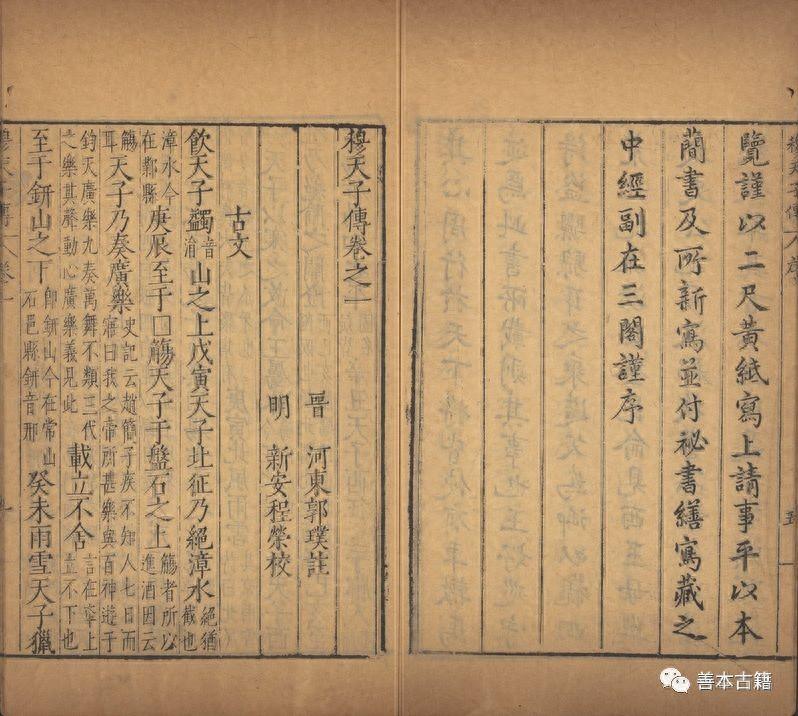 覽謹以二尺黃紙寫上請事平以本
蕳書及所新寫並付祕書繕寫藏之
中經副在三閣謹序
穆天子傳卷之一
晉 河東郭璞註
明 新安程榮校
古文
飲天子蠲音涓山之上戊寅天子北征乃絕漳水絕猶截也
漳水今在鄴縣庚辰至于□觴天子于盤石之上觴者所以進酒因云
觴耳天子乃奏廣樂史記云趙簡子疾不知人七日而寤曰我之帝所甚樂與百神遊于
鈞天廣樂九奏萬舞不類三代之樂其聲動心廣樂義見此載立不舍言在車上立不下也
至于鈃山之下即鈃山今在常山石邑縣鈃音邢癸未雨雪天子獵
穆天子傳 卷一
善本古籍